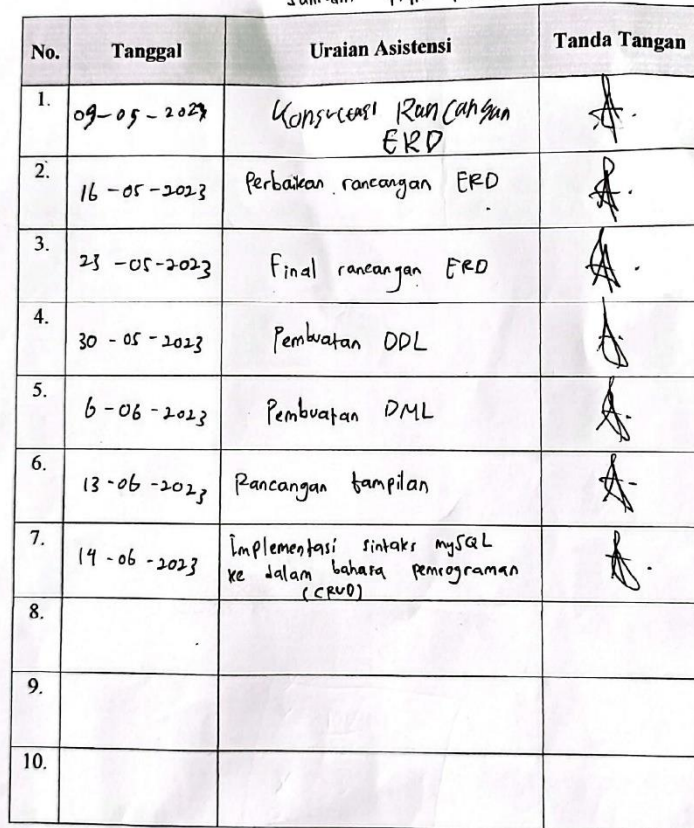 No. Tanggal Uraian Asistensi Tanda Tangan
1. 09-05-2023 Konsultasi Rancangan
ERD
2. 16-05-2023 Perbaikan rancangan ERD
3. 23-05-2023 Final rancangan ERD
4. 30-05-2023 Pembuatan DDL
5. 6-06-2023 Pembuatan DML
6. 13-06-2023 Rancangan tampilan
7. 14-06-2023 Implementasi sintaks mySQL
ke dalam bahasa pemrograman
(CRUD)
8.
9.
10.